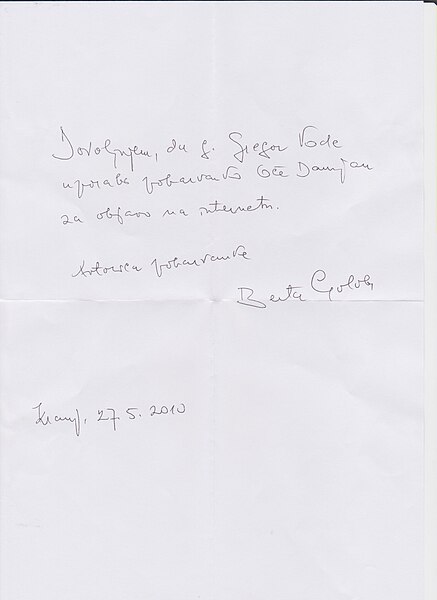 Dovoljujem, da g. Gregor Vode
uporabi pobarvanko Oče Damijan
za objavo na internetu.
Avtorica pobarvanke
Berta Golob
Kranj, 27. 5. 2010